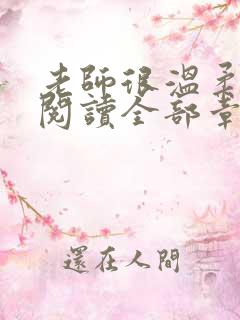 老師很溫柔
閱讀全部章
還在人間